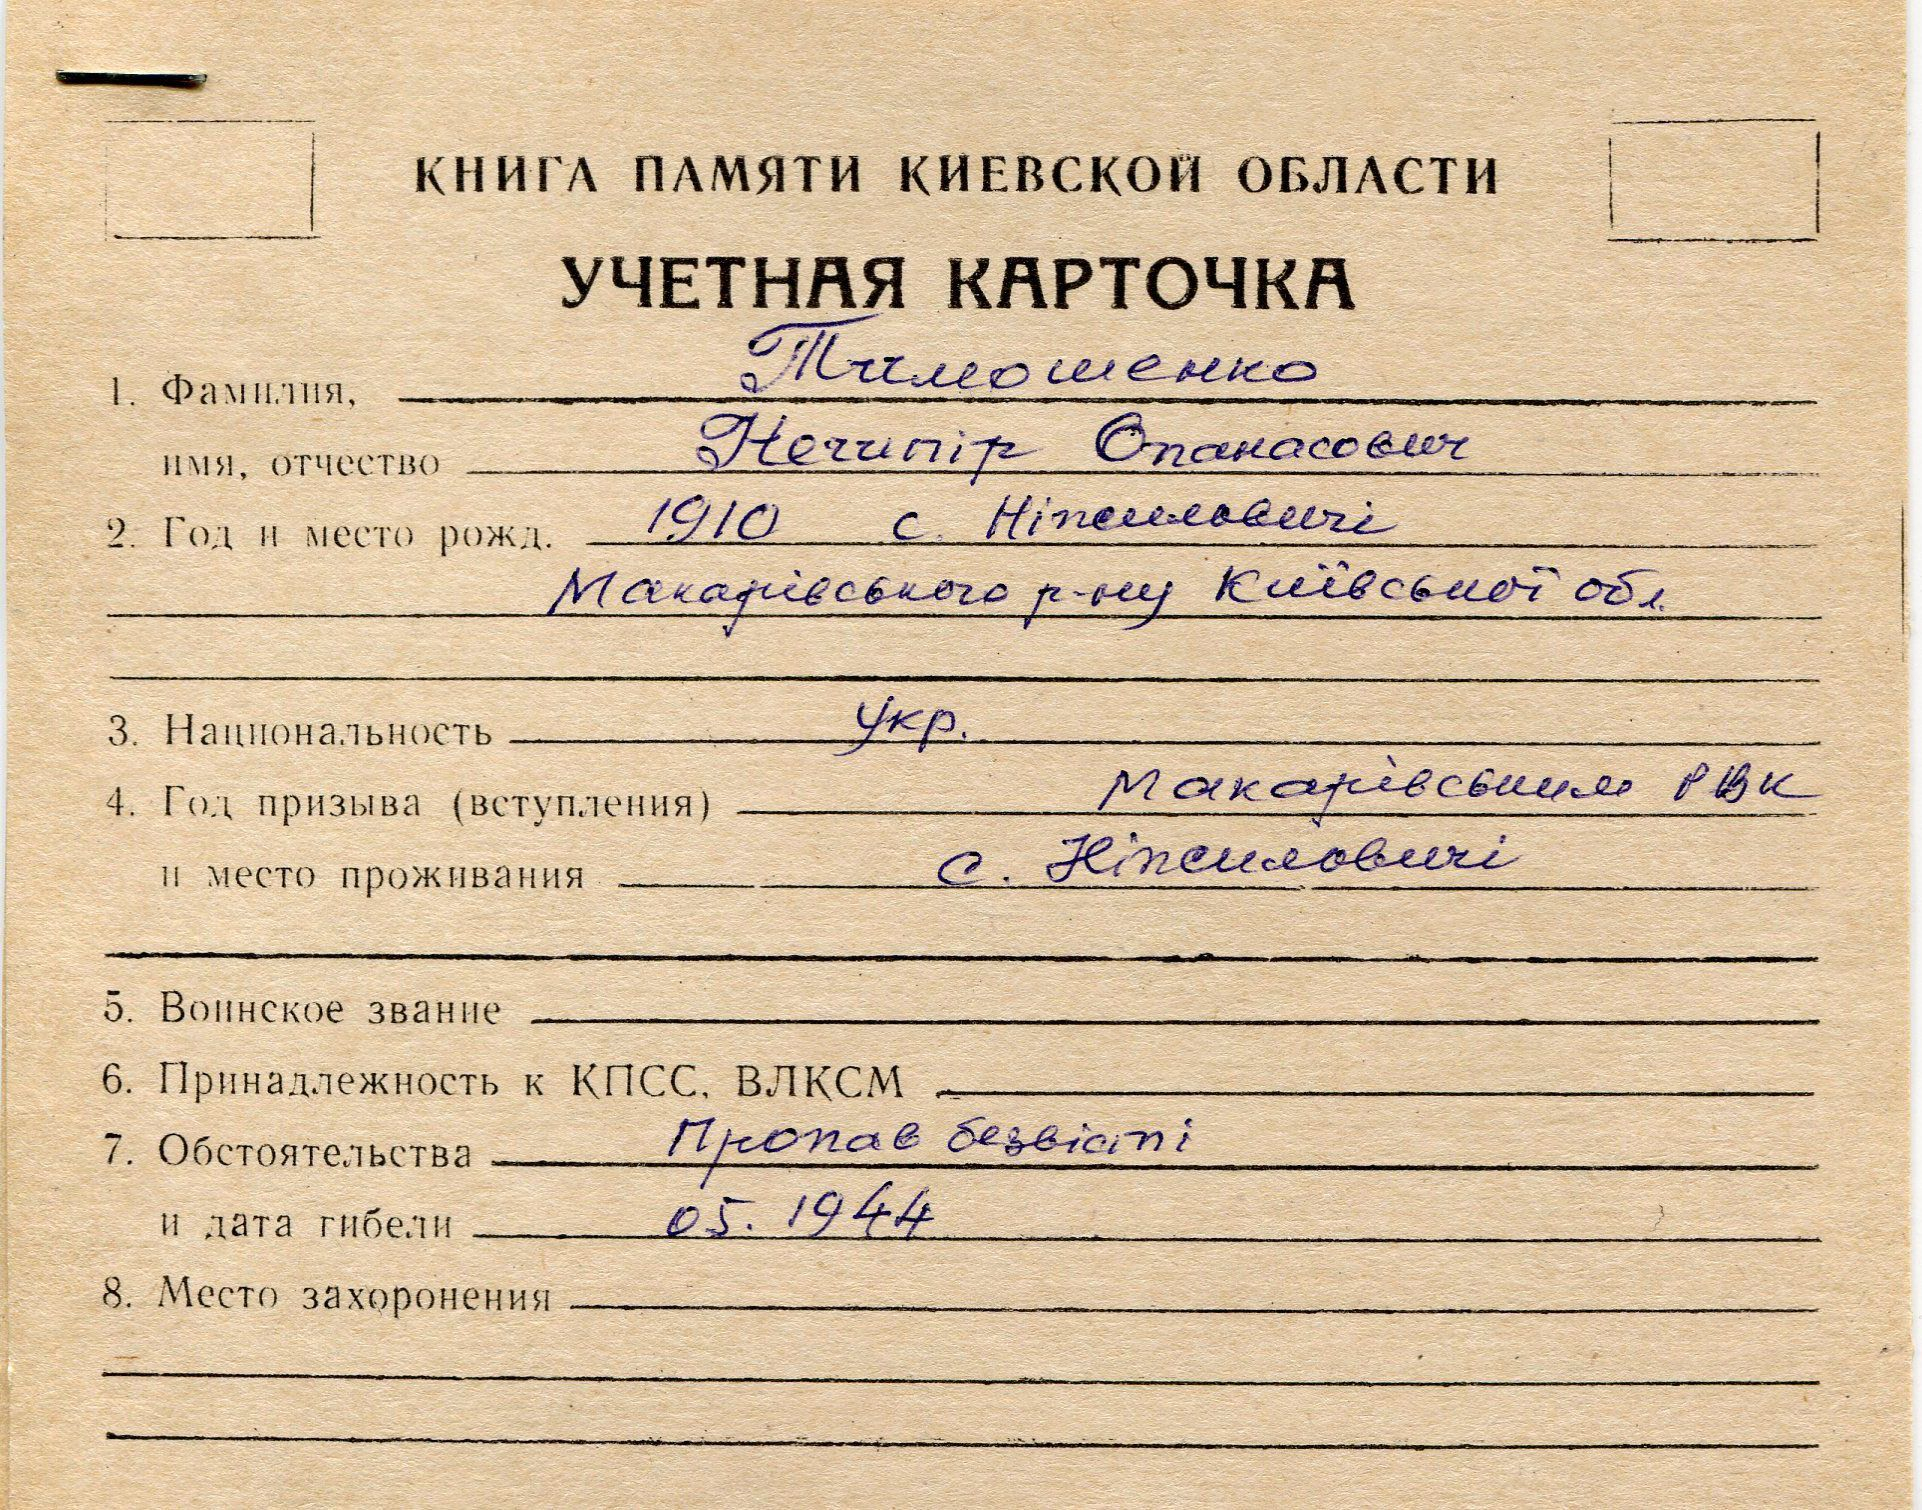 КНИГА ПАМЯТИ КИЕВСКОЙ ОБЛАСТИ
УЧЕТНАЯ КАРТОЧКА
1. Фамилия, Тимошенко
имя, отчество Нечипір Опанасович
2. Год и место рожд. 1910 с. Ніпсиловичі
Макарівського р-ну Київської обл.
3. Национальность Укр.
4. Год призыва (вступления) Макарівським РВК
и место проживания с. Ніпсиловичі
5. Воинское звание
6. Принадлежность к КПСС, ВЛКСМ
7. Обстоятельства Пропав безвісті
и дата гибели 05. 1944
8. Место захоронения